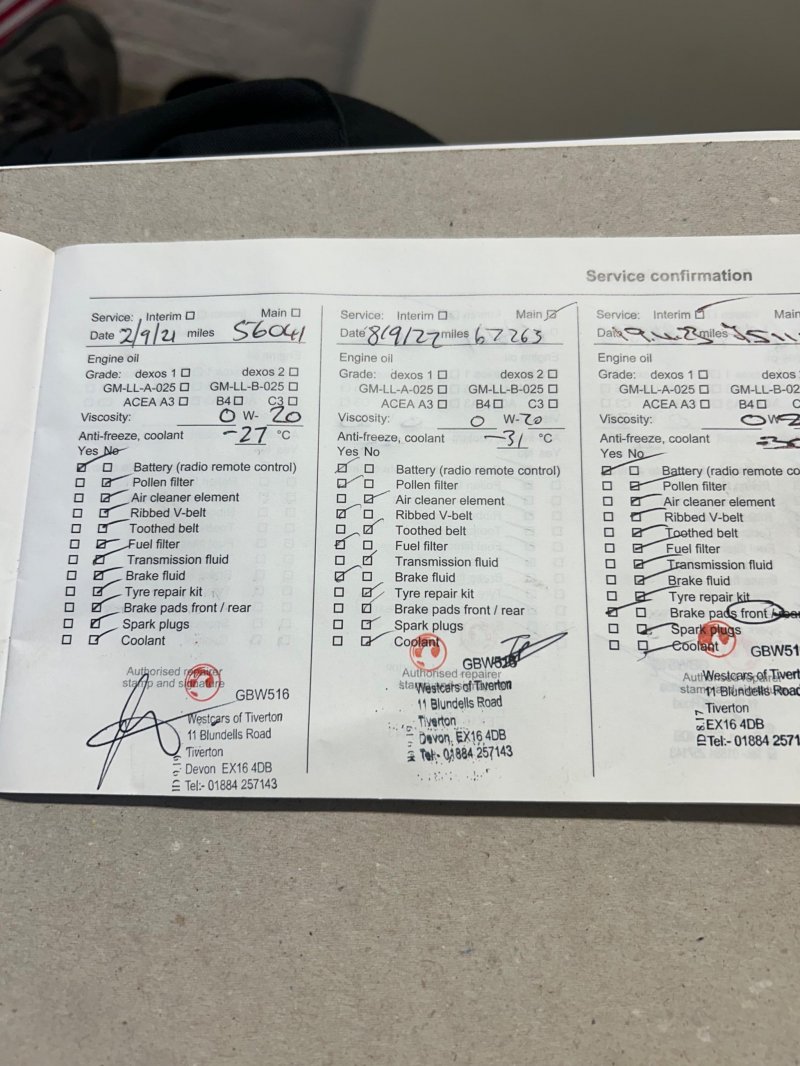 Service confirmation
Service: Interim ☐ Main ☐
Date 2/9/21 miles 56041
Engine oil
Grade: dexos 1 ☐ dexos 2 ☐
GM-LL-A-025 ☐ GM-LL-B-025 ☐
ACEA A3 ☐ B4 ☐ C3 ☐
Viscosity: 0 W- 20
Anti-freeze, coolant -27 °C
Yes No
Battery (radio remote control)
Pollen filter
Air cleaner element
Ribbed V-belt
Toothed belt
Fuel filter
Transmission fluid
Brake fluid
Tyre repair kit
Brake pads front / rear
Spark plugs
Coolant
Authorised repairer
stamp and signature
GBW516
Westcars of Tiverton
11 Blundells Road
Tiverton
Devon EX16 4DB
Tel:- 01884 257143
Service: Interim ☐ Main ☑
Date 8/9/22 miles 67263
Engine oil
Grade: dexos 1 ☐ dexos 2 ☐
GM-LL-A-025 ☐ GM-LL-B-025 ☐
ACEA A3 ☐ B4 ☐ C3 ☐
Viscosity: 0 W-20
Anti-freeze, coolant -31 °C
Yes No
Battery (radio remote control)
Pollen filter
Air cleaner element
Ribbed V-belt
Toothed belt
Fuel filter
Transmission fluid
Brake fluid
Tyre repair kit
Brake pads front / rear
Spark plugs
Coolant
GBW516
Authorised repairer
Westcars of Tiverton
11 Blundells Road
Tiverton
Devon, EX16 4DB
Tel:- 01884 257143
Service: Interim ☑ Main
Date miles
Engine oil
Grade: dexos 1 ☐ dexos
GM-LL-A-025 ☐ GM-LL-B-02
ACEA A3 ☐ B4 ☐ C3
Viscosity: 0 W-2
Anti-freeze, coolant -30
Yes No
Battery (radio remote co
Pollen filter
Air cleaner element
Ribbed V-belt
Toothed belt
Fuel filter
Transmission fluid
Brake fluid
Tyre repair kit
Brake pads front /
Spark plugs
Coolant
GBW51
Westcars of Tivert
11 Blundells Road
Tiverton
EX16 4DB
Tel:- 01884 2571